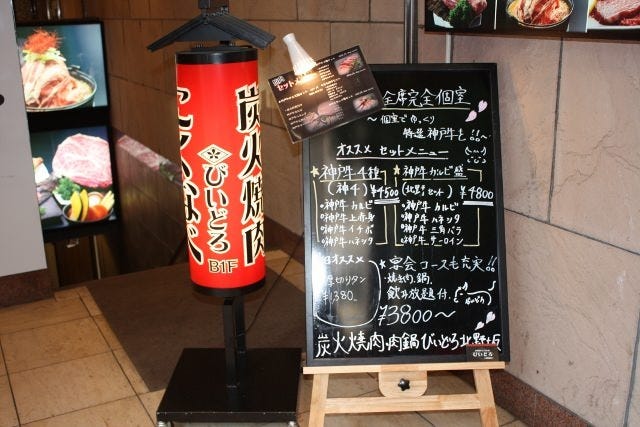 炭火焼肉
びいどろ
B1F
セット
全席完全個室
～個室でゆっくり
特選神戸牛を!!～
オススメ セットメニュー
神戸牛4種
(神4) ¥4500
神戸牛 カルビ
神戸牛 上赤身
神戸牛 イチボ
神戸牛 ハネシタ
神戸牛 カルビ盛
(北野セット) ¥4800
神戸牛 カルビ
神戸牛 ハネシタ
神戸牛 三角バラ
神戸牛 サーロイン
オススメ
厚切りタン
¥1380
宴会コースも充実!!
焼き肉,鍋,
飲み放題付.
¥3800～
炭火焼肉・肉鍋びいどろ北野坂
びいどろ